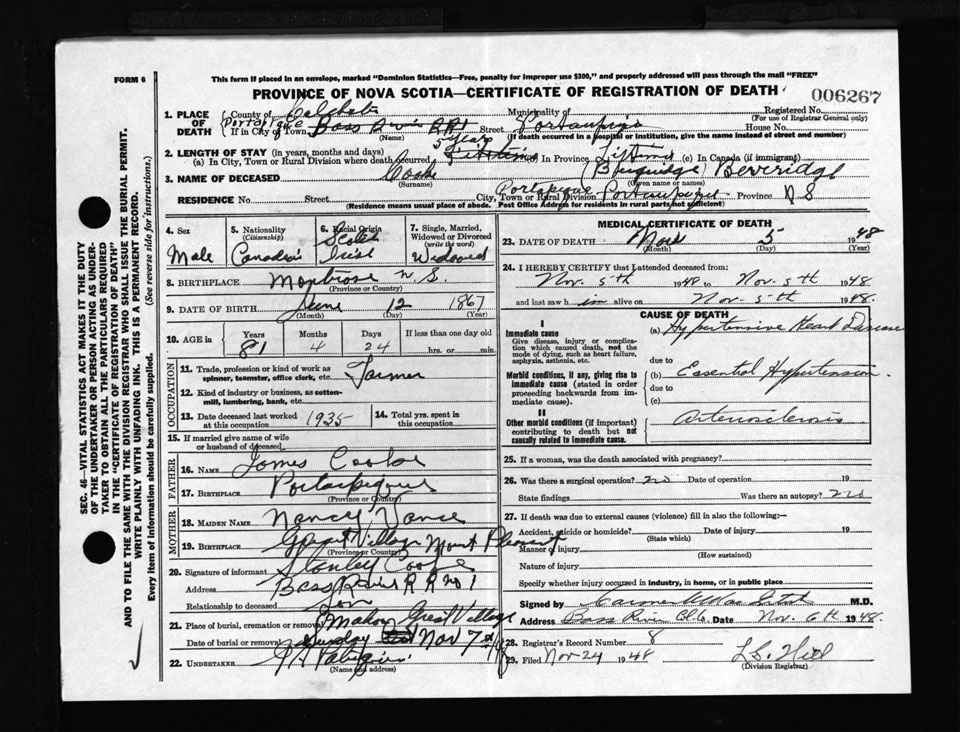 FORM 6
This form if placed in an envelope, marked "Dominion Statistics—Free, penalty for improper use $300," and properly addressed will pass through the mail "FREE"
PROVINCE OF NOVA SCOTIA—CERTIFICATE OF REGISTRATION OF DEATH
006267
1. PLACE OF DEATH
County of Colchester Municipality of Registered No.
(For use of Registrar General only)
If in City or Town Bass River RR1 Street House No.
(Name) (If death occurred in a hospital or institution, give the name instead of street and number)
2. LENGTH OF STAY (in years, months and days) 5 years
(a) In City, Town or Rural Division where death occurred (b) In Province Lifetime (c) In Canada (if immigrant)
3. NAME OF DECEASED Cooke Beveridge
(Surname) (Given name or names)
RESIDENCE No. Street City, Town or Rural Division Portapique Province N S
(Residence means usual place of abode. Post Office Address for residents in rural parts not sufficient)
4. Sex
Male
5. Nationality
(Citizenship)
Canadian
6. Racial Origin
Scotch
Irish
7. Single, Married,
Widowed or Divorced
(write the word)
Widowed
8. BIRTHPLACE Montrose N. S.
(Province or Country)
9. DATE OF BIRTH June 12 1867
(Month) (Day) (Year)
10. AGE in
Years Months Days If less than one day old
81 4 24 hrs. or min.
OCCUPATION
11. Trade, profession or kind of work as
spinner, teamster, office clerk, etc. Farmer
12. Kind of industry or business, as cotton-
mill, lumbering, bank, etc.
13. Date deceased last worked
at this occupation 1935
14. Total yrs. spent in
this occupation
15. If married give name of wife
or husband of deceased
FATHER
16. NAME James Cooke
17. BIRTHPLACE
(Province or Country)
MOTHER
18. MAIDEN NAME Nancy Vance
19. BIRTHPLACE Great Village Mount Pleasant
(Province or Country)
20. Signature of informant Stanley Cooke
Address Bass River R R no 1
Relationship to deceased Son
21. Place of burial, cremation or removal Mahon Great Village
Date of burial or removal Sunday Nov 7th
22. UNDERTAKER
(Name and address)
MEDICAL CERTIFICATE OF DEATH
23. DATE OF DEATH Nov 5 1948
(Month) (Day) (Year)
24. I HEREBY CERTIFY that I attended deceased from:
Nov. 5th 1948 to Nov. 5th 1948
and last saw him alive on Nov. 5th 1948.
CAUSE OF DEATH
I
Immediate cause
Give disease, injury or complica-
tion which caused death, not the
mode of dying, such as heart failure,
asphyxia, asthenia, etc.
(a) Hypertensive Heart Disease
due to
Morbid conditions, if any, giving rise to
immediate cause (stated in order
proceeding backwards from im-
mediate cause).
(b) Essential Hypertension
due to
(c)
II
Other morbid conditions (if important)
contributing to death but not
causally related to immediate cause.
arteriosclerosis
25. If a woman, was the death associated with pregnancy?
26. Was there a surgical operation? no Date of operation 19
State findings Was there an autopsy? no
27. If death was due to external causes (violence) fill in also the following:—
Accident, suicide or homicide? Date of injury 19
(State which)
Manner of injury
(How sustained)
Nature of injury
Specify whether injury occurred in industry, in home, or in public place
Signed by M.D.
Address Bass River Date Nov. 6th 1948.
28. Registrar's Record Number 8
29. Filed Nov 24 1948
(Division Registrar)
SEC. 46—VITAL STATISTICS ACT MAKES IT THE DUTY
OF THE UNDERTAKER OR PERSON ACTING AS UNDER-
TAKER TO OBTAIN ALL THE PARTICULARS REQUIRED
IN THE "CERTIFICATE OF REGISTRATION OF DEATH"
AND TO FILE THE SAME WITH THE DIVISION REGISTRAR WHO SHALL ISSUE THE BURIAL PERMIT.
WRITE PLAINLY WITH UNFADING INK. THIS IS A PERMANENT RECORD.
Every item of information should be carefully supplied. (See reverse side for instructions.)